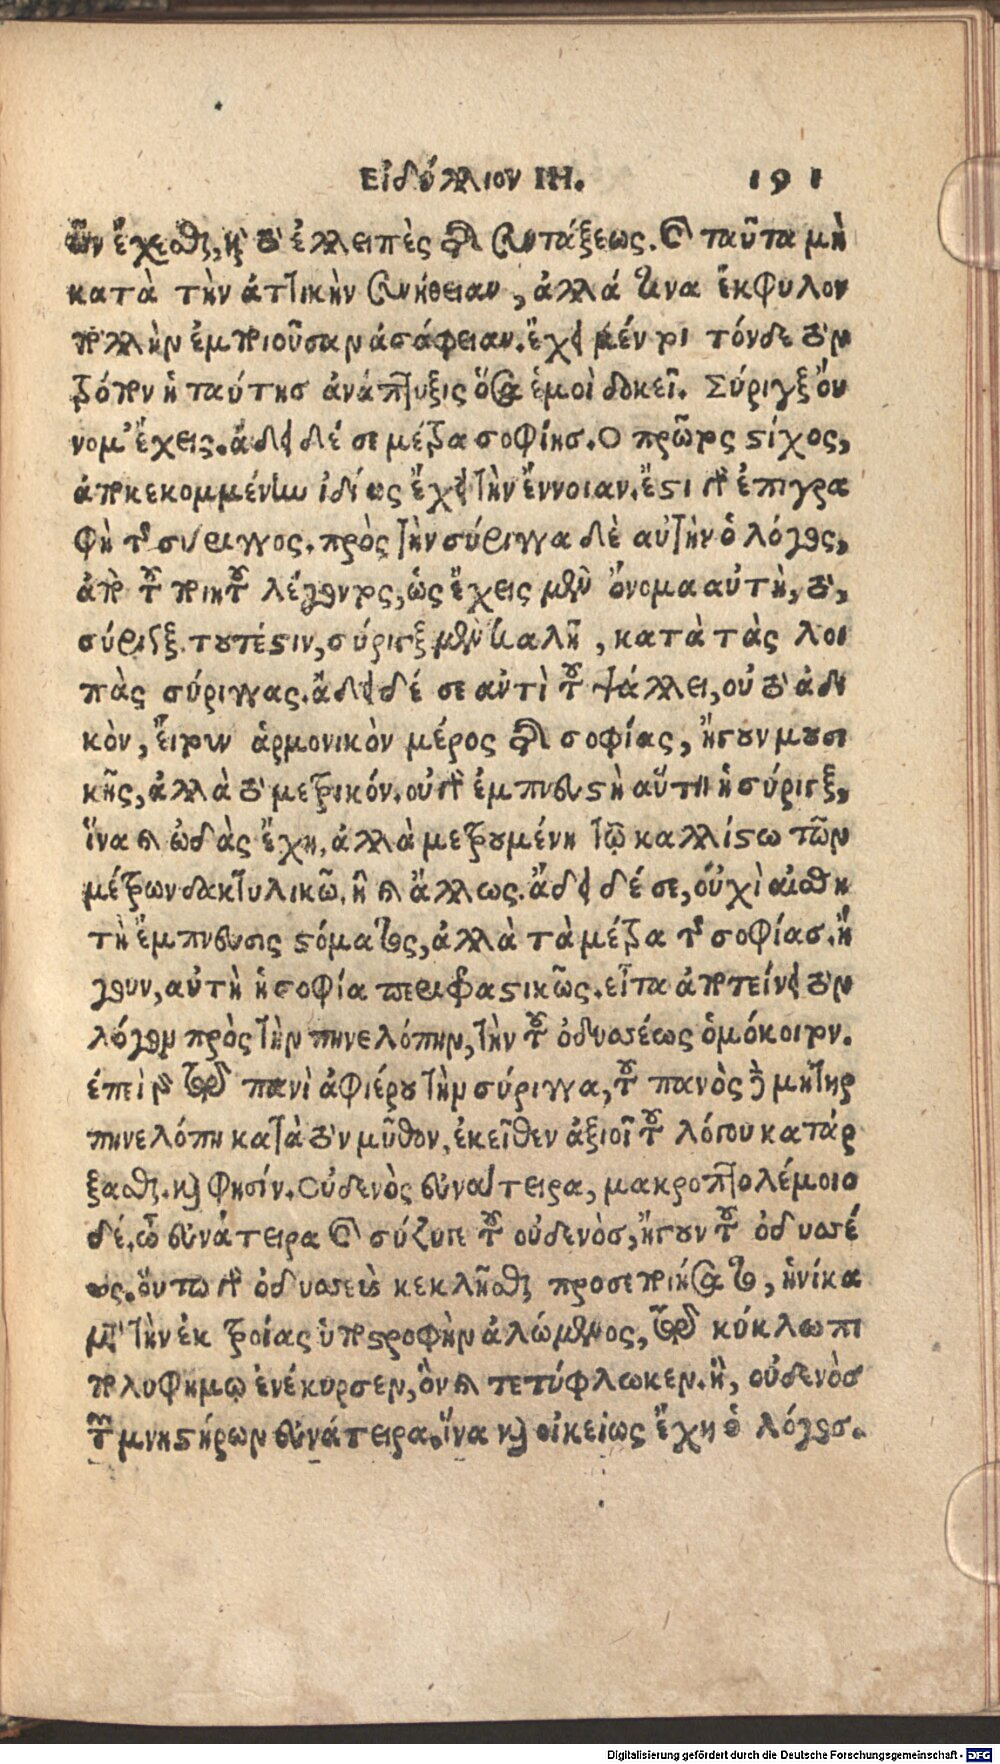 Εἰδύλλιον ΙΗ. 191
ὧν ἔχεσθαι, καὶ τὸ ἐλλειπὲς τῆς συντάξεως. καὶ ταῦτα μὴ
κατὰ τὴν ἀττικὴν συνήθειαν, ἀλλά τινα ἔκφυλον
πολλὴν ἐμποιοῦσαν ἀσάφειαν. ἔχει μέντοι τόνδε τὸν
τρόπον ἡ ταύτης ἀνάπτυξις ὅσα ἐμοὶ δοκεῖ. Σύριγξ οὔ
νομ' ἔχεις. ἄδει δέ σε μέτρα σοφίης. Ο πρῶτος στίχος,
ἀποκεκομμένην ἰδίως ἔχει τὴν ἔννοιαν. ἔστι γὰρ ἐπιγρα
φὴ τῆς σύριγγος. πρὸς τὴν σύριγγα δὲ αὐτὴν ὁ λόγος,
ἀπὸ τοῦ ποιητοῦ λέγοντος, ὡς ἔχεις μὲν ὄνομα αὐτὴ, τὸ,
σύριγξ. τουτέστιν, σύριγξ μὲν καλῇ, κατὰ τὰς λοι
πὰς σύριγγας. ἄδει δέ σε αὐτὶ τοῦ ψάλλει, οὐ τὸ ᾀδι
κὸν, εἴτουν ἁρμονικὸν μέρος τῆς σοφίας, ἤγουν μουσι
κῆς, ἀλλὰ τὸ μετρικόν. οὐ γὰρ ἐμπνευστὴ αὕτη ἡ σύριγξ,
ἵνα καὶ ὠδὰς ἔχῃ, ἀλλὰ μετρουμένη τῷ καλλίστω τῶν
μέτρων δακτυλικῶ, ἢ καὶ ἄλλως. ἄδει δέ σε, οὐχὶ αἰσθη
τὴ ἔμπνευσις στόματος, ἀλλὰ τὰ μέτρα τῆς σοφίας. ἤ
γουν, αὐτὴ ἡ σοφία περιφραστικῶς. εἶτα ἀποτείνει τὸν
λόγον πρὸς τὴν πηνελόπην, τὴν τοῦ ὀδυσσέως ὁμόκοιτον.
ἐπεὶ γὰρ τῷ πανὶ ἀφιέρου τὴν σύριγγα, τοῦ πανὸς δὲ μήτηρ
πηνελόπη κατὰ τὸν μῦθον, ἐκεῖθεν ἀξιοῖ τοῦ λόγου κατάρ
ξασθαι. καὶ φησίν. Οὐδενὸς εὐνάτειρα, μακροπτολέμοιο
δέ. ὦ εὐνάτειρα καὶ σύζυγε τοῦ οὐδενὸς, ἤγουν τοῦ ὀδυσσέ
ως. οὕτω γὰρ ὀδυσσεὺς κεκλῆσθαι προσεποιήσατο, ἡνίκα
μετὰ τὴν ἐκ τροίας ὑποστροφὴν ἀλώμενος, τῷ κύκλωπι
πολυφήμῳ ἐνέκυρσεν, ὃν καὶ τετύφλωκεν. ἢ, οὐδενὸς
τῶν μνηστήρων εὐνάτειρα. ἵνα καὶ οἰκείως ἔχῃ ὁ λόγος.
Digitalisierung gefördert durch die Deutsche Forschungsgemeinschaft - DFG